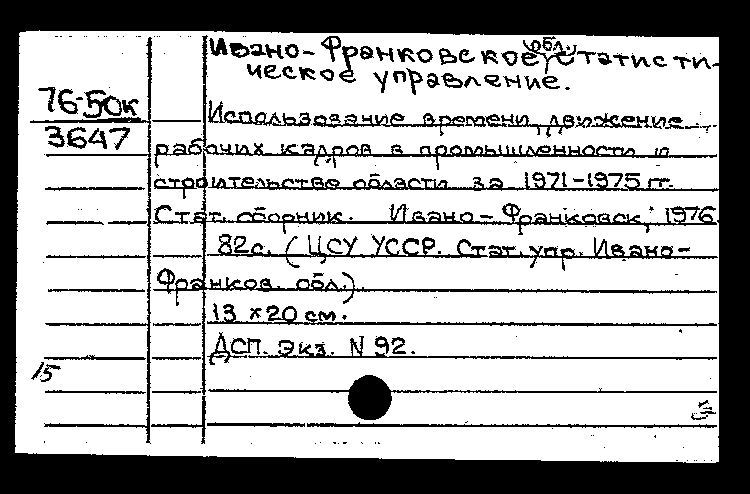 Ивано-Франковское обл. статисти-
ческое управление.
76-50к
3647
Использование времени, движение
рабочих кадров в промышленности и
строительстве области за 1971-1975 гг.
Стат. сборник. Ивано-Франковск, 1976.
82с. (ЦСУ УССР. Стат. упр. Ивано-
Франков. обл.).
13 x 20 см.
ДСП. Экз. N 92.
15